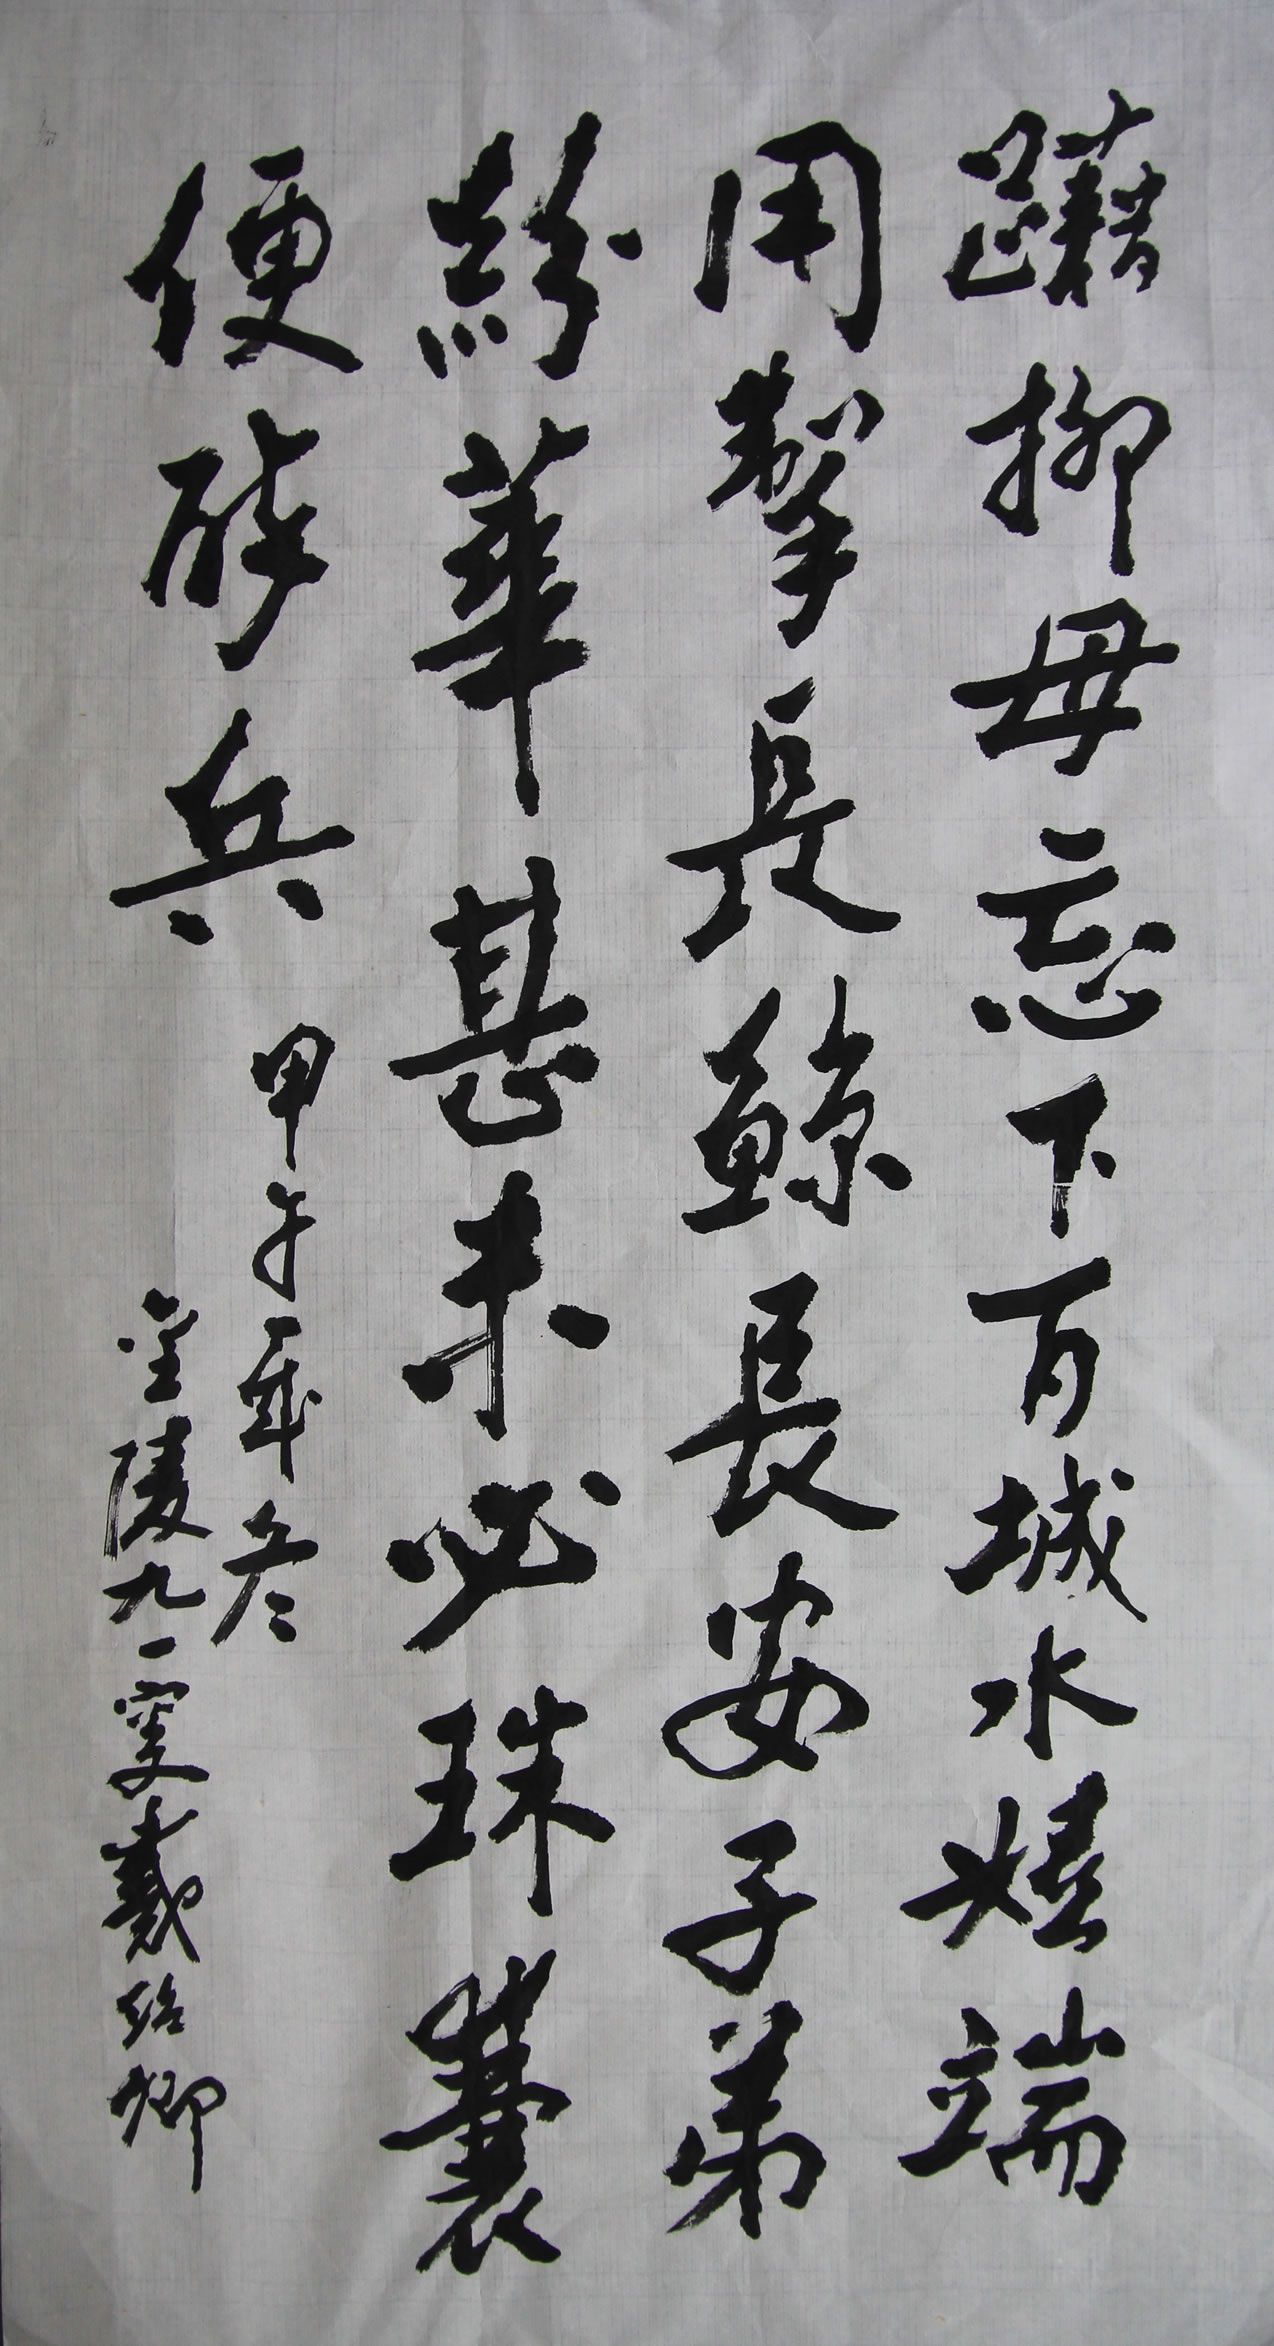 躪柳毋忘下百城水嬉端
用掣長鯨長安子弟
紛華甚未必珠囊
便醉兵
甲午年冬
金陵九一叟戴绍卿